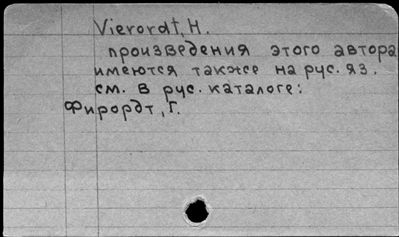 Vierordt, H.
произведения этого автора
имеются также на рус. яз.
см. в рус. каталоге:
Фирордт, Г.